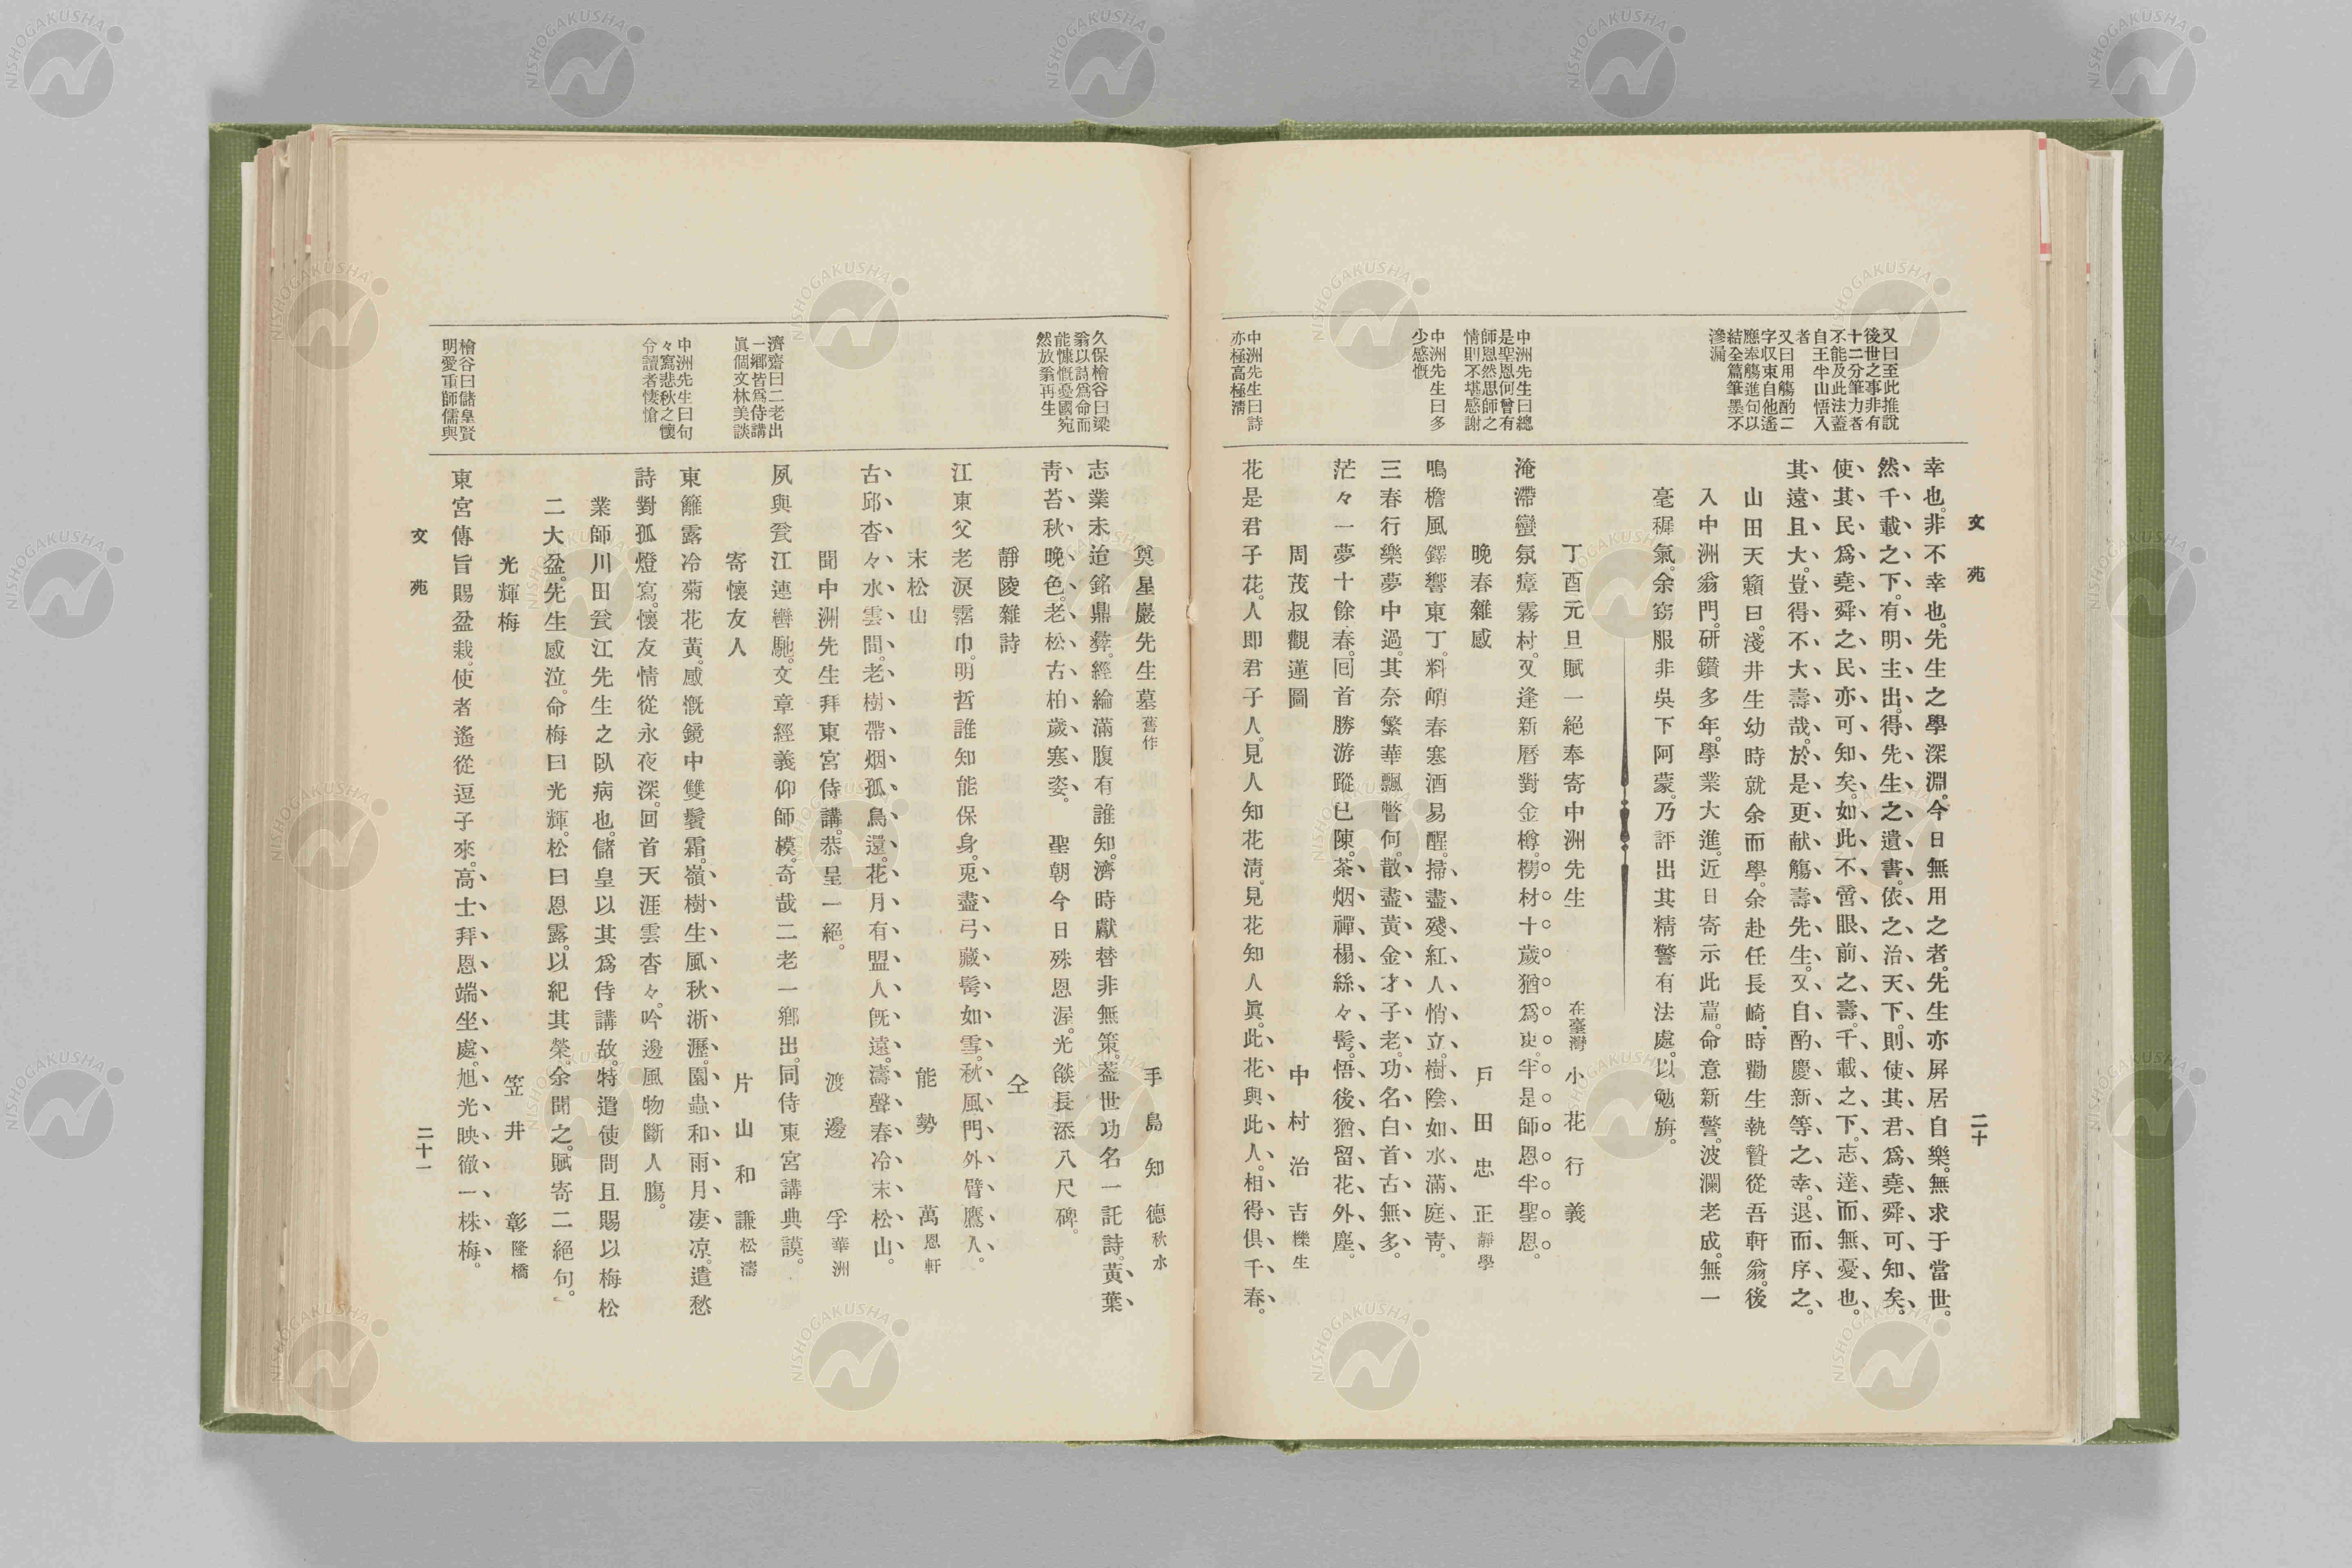 文苑
二十
又曰至此推說
後世之事非有
十二分筆力者
不能及此法蓋
自王半山悟入
者
又曰用觴酌二
字収束自他遙
應奉觴進句以
結全篇筆墨不
滲漏
幸也。非不幸也。先生之學深淵。今日無用之者。先生亦屏居自樂。無求于當世。
然千載之下。有明主出。得先生之遺書。依之治天下。則使其君爲堯舜可知矣。
使其民爲堯舜之民亦可知矣。如此不啻眼前之壽。千載之下。志達而無憂也。
其遠且大。豈得不大壽哉。於是更献觴壽先生。又自酌慶新等之幸。退而序之。
山田天籟曰。淺井生幼時就余而學。余赴任長崎。時勸生執贄從吾軒翁。後
入中洲翁門。研鑽多年。學業大進。近日寄示此篇。命意新警。波瀾老成。無一
毫穉氣。余窃服非吳下阿蒙。乃評出其精警有法處。以勉旃。
丁酉元旦賦一絕奉寄中洲先生
在臺灣 小花行義
中洲先生曰總
是聖恩何曾有
師恩然思師之
情則不堪感謝
淹滯蠻氛瘴霧村。又逢新曆對金樽。樗材十歲猶爲吏。半是師恩半聖恩。
晚春雜感
戶田忠正 靜學
中洲先生曰多
少感慨
鳴檐風鐸響東丁。料峭春寒酒易醒。掃盡殘紅人悄立。樹陰如水滿庭靑。
三春行樂夢中過。其奈繁華飄瞥何。散盡黃金才子老。功名白首古無多。
茫々一夢十餘春。囘首勝游蹤已陳。茶烟禪榻絲々髩。悟後猶留花外塵。
周茂叔觀蓮圖
中村治吉 櫟生
中洲先生曰詩
亦極高極淸
花是君子花。人即君子人。見人知花淸。見花知人眞。此花與此人。相得倶千春。
奠星巖先生墓 舊作
手島知德 秋水
久保檜谷曰梁
翁以詩爲命而
能慷慨憂國宛
然放翁再生
志業未追銘鼎彝。經綸滿腹有誰知。濟時獻替非無策。蓋世功名一託詩。黃葉
靑苔秋晚色。老松古柏歲寒姿。 聖朝今日殊恩渥。光燄長添八尺碑。
靜陵雜詩
仝
江東父老淚霑巾。明哲誰知能保身。兎盡弓藏髩如雪。秋風門外臂鷹人。
末松山
能勢萬 恩軒
古邱杳々水雲間。老樹帶烟孤鳥還。花月有盟人旣遠。濤聲春冷末松山。
聞中洲先生拜東宮侍講。恭呈一絕。
渡邊孚 華洲
濟齋曰二老出
一鄕皆爲侍講
眞個文林美談
夙與甕江連轡馳。文章經義仰師模。奇哉二老一鄕出。同侍東宮講典謨。
寄懷友人
片山和謙 松濤
中洲先生曰句
々寫悲秋之懷
令讀者悽愴
東籬露冷菊花黃。感慨鏡中雙鬢霜。嶺樹生風秋淅瀝。園蟲和雨月凄凉。遣愁
詩對孤燈寫。懷友情從永夜深。回首天涯雲杳々。吟邊風物斷人膓。
業師川田甕江先生之臥病也。儲皇以其爲侍講故。特遣使問且賜以梅松
二大盆。先生感泣。命梅曰光輝。松曰恩露。以紀其榮。余聞之。賦寄二絕句。
光輝梅
笠井彰 隆橋
檜谷曰儲皇賢
明愛重師儒與
東宮傳旨賜盆栽。使者遙從逗子來。高士拜恩端坐處。旭光映徹一株梅。
文苑
二十一